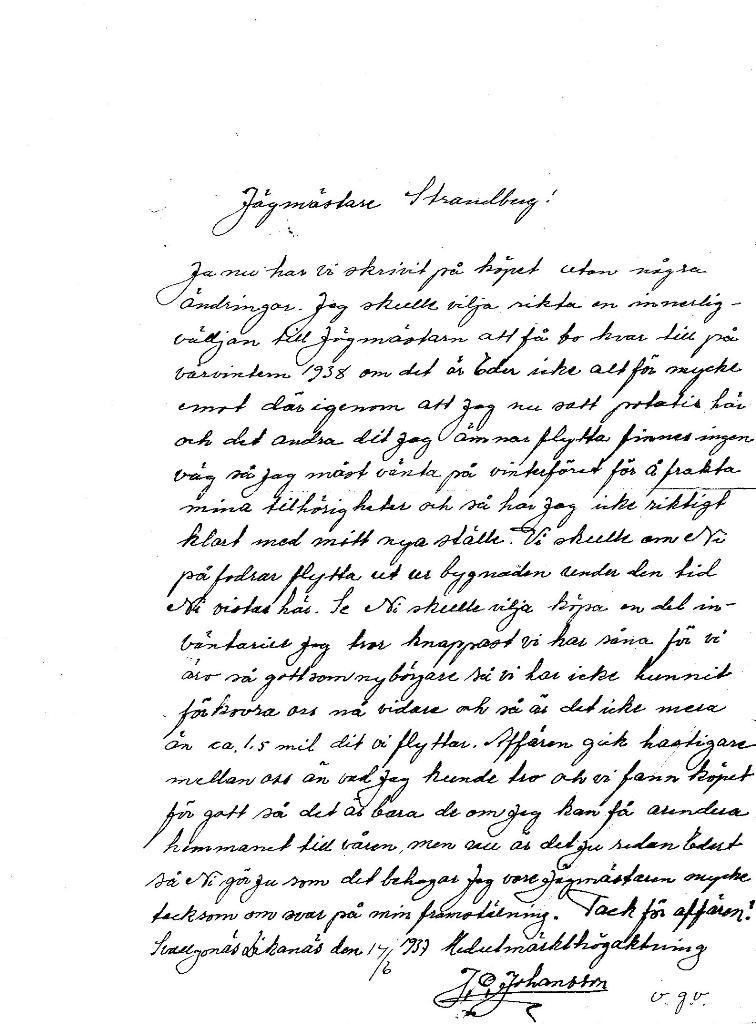 Jägmästare Strandberg!
Ja nu har vi skrivit på köpet utan några
ändringar. Jag skulle vilja rikta en innerlig-
vädjan till Jägmästarn att få bo kvar till på
vårvintern 1938 om det är Eder icke altför mycke
emot där igenom att Jag nu satt potatis här
och det andra dit Jag ämnar flytta finnes ingen
väg så Jag måst vänta på vinterföret för å frakta
mina tilhörigheter och så har Jag icke riktigt
klart med mitt nya ställe. Vi skulle om Ni
på fodrar flytta ut ur bygnaden under den tid
Ni vistas här. Se Ni skulle vilja köpa en del in-
väntarier Jag tror knappast vi har såna för vi
äro så gott som nybörgare så vi har icke hunnit
förkovra oss nå vidare och så är det icke mera
än ca. 1.5 mil dit vi flyttar. Affären gick hastigare
mellan oss än vad Jag kunde tro och vi fann köpet
för gott så det är bara de om Jag kan få arendera
hemmanet till våren, men nu är det Ju redan Edert
så Ni gör Ju som det behagar Jag vore Jägmästaren mycke
tacksom om svar på min framstälning. Tack för affären!
Dikanäs den 17/6 1937 Med utmärkt högaktning
J. P. Johansson
v. g. v.